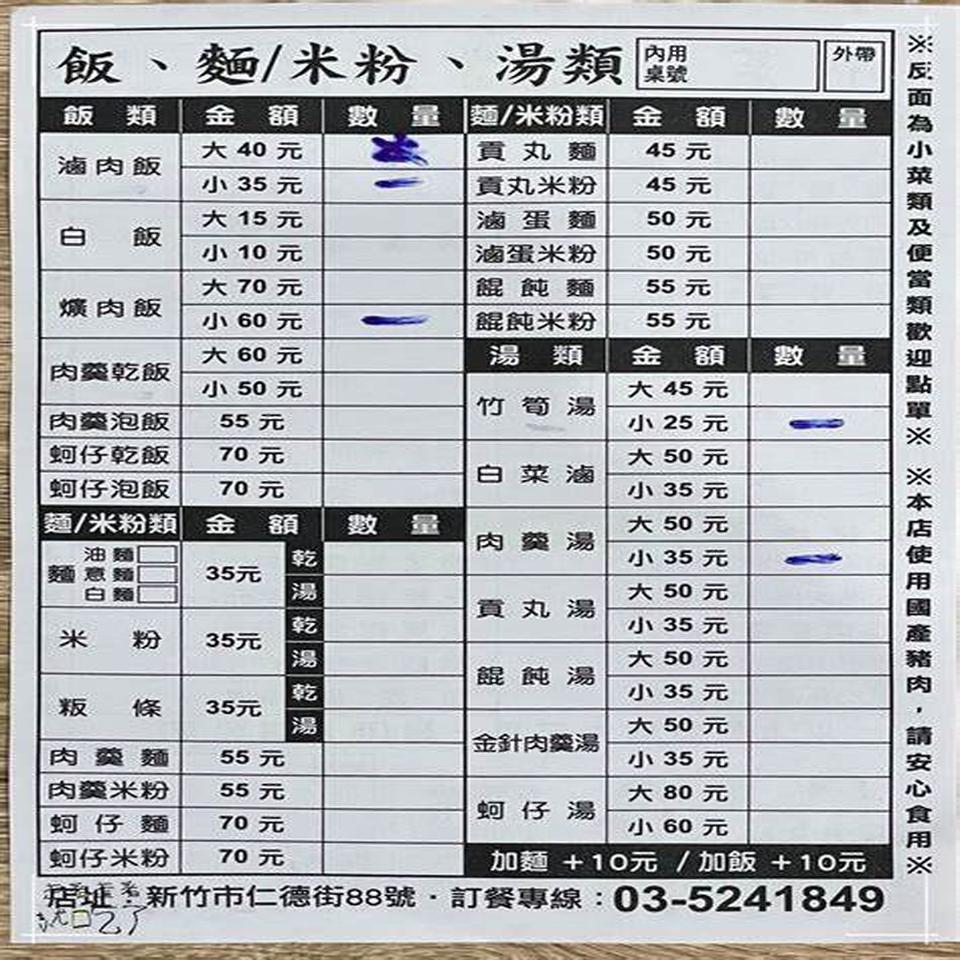 飯、麵/米粉、湯類 內用桌號 外帶
飯類 金額 數量
滷肉飯 大 40 元
小 35 元
白飯 大 15 元
小 10 元
爌肉飯 大 70 元
小 60 元
肉羹乾飯 大 60 元
小 50 元
肉羹泡飯 55 元
蚵仔乾飯 70 元
蚵仔泡飯 70 元
麵/米粉類 金額 數量
麵 油麵 意麵 白麵 35元 乾 湯
米粉 35元 乾 湯
粄條 35元 乾 湯
肉羹麵 55 元
肉羹米粉 55 元
蚵仔麵 70 元
蚵仔米粉 70 元
麵/米粉類 金額 數量
貢丸麵 45 元
貢丸米粉 45 元
滷蛋麵 50 元
滷蛋米粉 50 元
餛飩麵 55 元
餛飩米粉 55 元
湯類 金額 數量
竹筍湯 大 45 元
小 25 元
白菜滷 大 50 元
小 35 元
肉羹湯 大 50 元
小 35 元
貢丸湯 大 50 元
小 35 元
餛飩湯 大 50 元
小 35 元
金針肉羹湯 大 50 元
小 35 元
蚵仔湯 大 80 元
小 60 元
加麵 +10元 /加飯 +10元
店址：新竹市仁德街88號·訂餐專線：03-5241849
※反面為小菜類及便當類歡迎點單※
※本店使用國產豬肉，請安心食用※